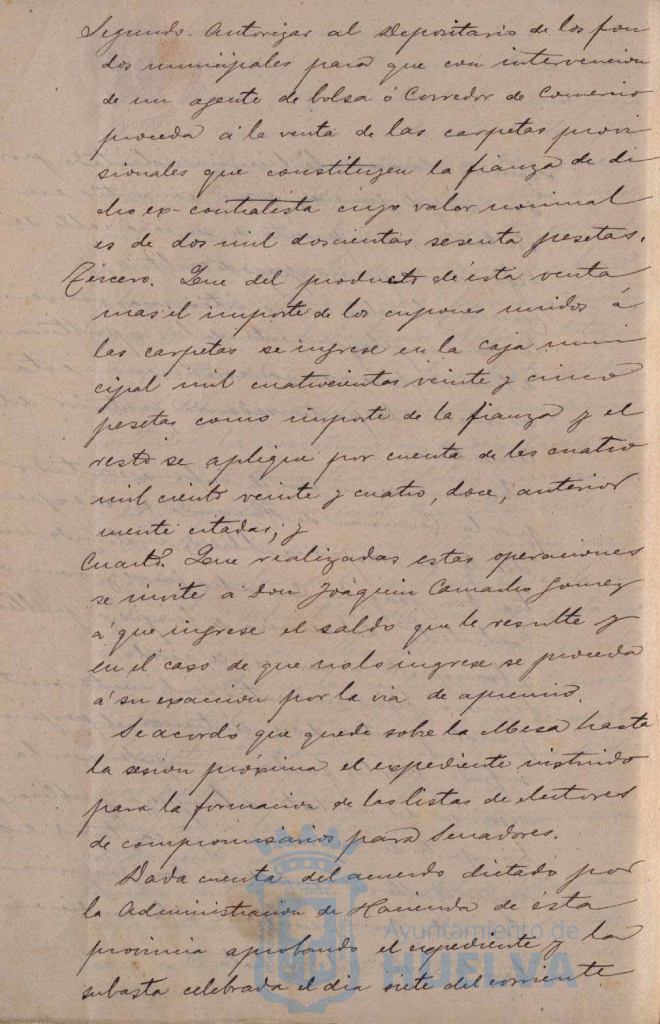 Segundo. Autorizar al Depositario de los fon
dos municipales para que con intervencion
de un agente de bolsa ó Corredor de Comercio
proceda á la venta de las carpetas provi
sionales que constituyen la fianza de di
cho ex-contratista cuyo valor nominal
es de dos mil doscientas sesenta pesetas.
Tercero. Que del producto de ésta venta
mas el importe de los cupones unidos á
las carpetas se ingrese en la caja muni
cipal mil cuatrocientas veinte y cinco
pesetas como importe de la fianza y el
resto se aplique por cuenta de las cuatro
mil ciento veinte y cuatro, doce, anterior
mente citadas; y
Cuarto. Que realizadas estas operaciones
se invite á Don Joaquin Camacho Gomez
á que ingrese el saldo que le resulte y
en el caso de que no lo ingrese se proceda
á su exaccion por la via de apremio.
Se acordó que quede sobre la Mesa hasta
la sesion próxima el expediente instruido
para la formacion de las listas de electores
de compromisarios para Senadores.
Dada cuenta del acuerdo dictado por
la Administracion de Hacienda de ésta
provincia aprobando el expediente y la
subasta celebrada el dia siete del corriente
Ayuntamiento de
HUELVA